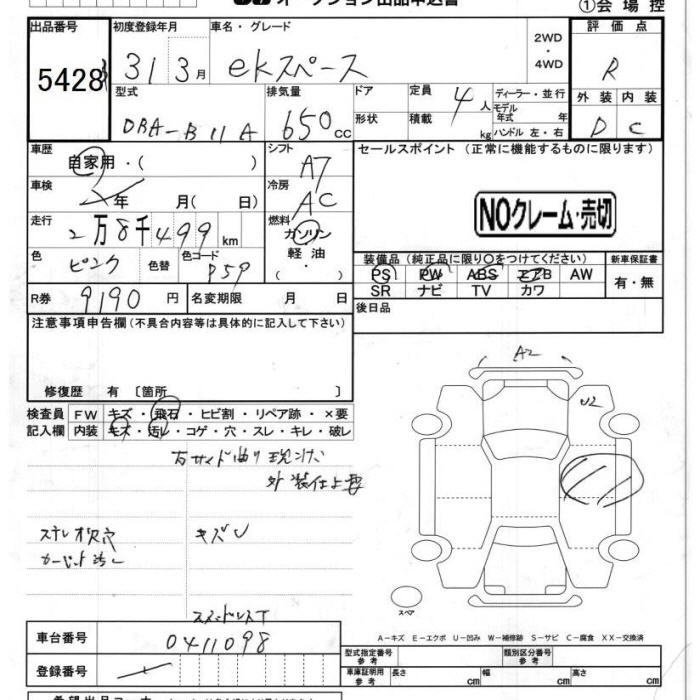 オークション出品申込書
①会場控
出品番号
初度登録年月
車名・グレード
2WD
・
4WD
評価点
5428
31 3月
ekスペース
R
型式
排気量
ドア
定員
4人
ディーラー・並行
外装
内装
DBA-B11A
650cc
形状
積載
kg
モデル年式 年
ハンドル 左・右
D
C
車歴
自家用・( )
シフト
A7
セールスポイント (正常に機能するものに限ります)
車検
年 月( 日)
冷房
AC
NOクレーム・売切
走行
2万8千499km
燃料
ガソリン
軽油
・( )
色
ピンク
色替
色コード
P59
装備品 (純正品に限り〇をつけてください)
新車保証書
PS PW ABS エアB AW
有・無
SR ナビ TV カワ
R券
9190円
名変期限 月 日
後日品
注意事項申告欄 (不具合内容等は具体的に記入して下さい)
修復歴 有 〔箇所 〕
検査員
記入欄
FW キズ・飛石・ヒビ割・リペア跡・×要
内装 キズ・汚レ・コゲ・穴・スレ・キレ・破レ
A2
U2
右サイド曲り現状
外装仕上要
ステレオ欠穴
キズU
カーペット汚レ
スタッドレスT
スペア
車台番号
0411098
A-キズ E-エクボ U-凹み W-補修跡 S-サビ C-腐食 XX-交換済
登録番号
型式指定番号
参考
類別区分番号
参考
車庫証明用
参考
長さ cm
幅 cm
高さ cm
希望出品コーナー